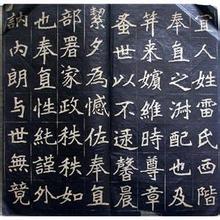 宜人姓雷氏西階
奉直之次配也及
笄來嬪維時尊章
蚤世以不逮馨晨
絜夕為憾佐奉直
部署家政秩秩如
也奉直性純謹外
訥內朗與世無競